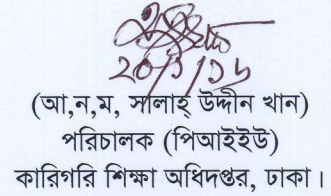 ২০/১/১৬
(আ,ন,ম, সালাহ্ উদ্দীন খান)
পরিচালক (পিআইইউ)
কারিগরি শিক্ষা অধিদপ্তর, ঢাকা।